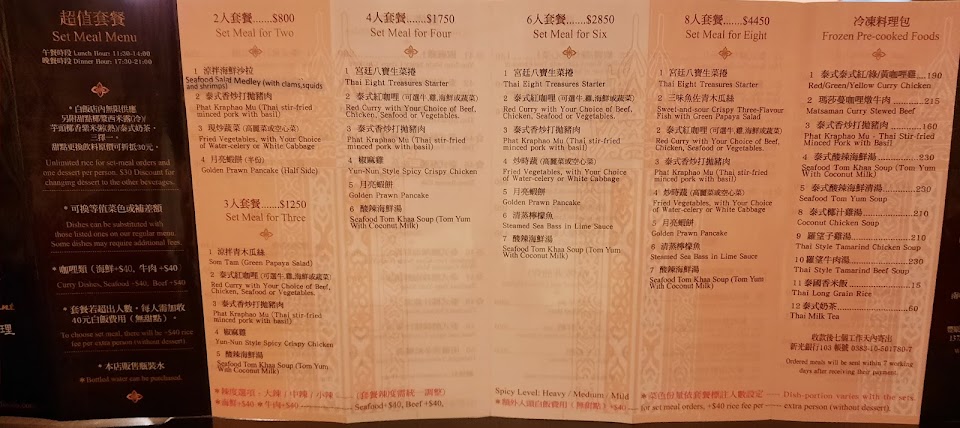 超值套餐
Set Meal Menu
午餐時段 Lunch Hour: 11:30-14:00
晚餐時段 Dinner Hour: 17:30-21:00
*白飯店內無限供應
另附甜點椰漿西米露(冷)
芋頭椰香紫米粥(熱)/泰式奶茶,
三擇一
甜點更換飲料原價可折抵30元。
Unlimited rice for set-meal orders and
one dessert per person. $30 Discount for
changing dessert to the other beverages.
*可換等值菜色或補差額
Dishes can be substituted with
those listed ones on our regular menu.
Some dishes may require additional fees.
*咖哩類(海鮮+$40, 牛肉+$40)
Curry Dishes, Seafood +$40, Beef +$40
*套餐若超出人數,每人需加收
40元白飯費用(無甜點)。
To choose set meal, there will be +$40 rice
fee per extra person (without dessert)
*本店販售瓶裝水
*Bottled water can be purchased.
2人套餐.......$800
Set Meal for Two
1 涼拌海鮮沙拉
Seafood Salad Medley (with clams,squids
and shrimps)
2 泰式香炒打拋豬肉
Phat Kraphao Mu (Thai stir-fried
minced pork with basil)
3 現炒蔬菜(高麗菜或空心菜)
Fried Vegetables, with Your Choice
of Water-celery or White Cabbage
4 月亮蝦餅(半份)
Golden Prawn Pancake (Half Side)
3人套餐.......$1250
Set Meal for Three
1 涼拌青木瓜絲
Som Tam (Green Papaya Salad)
2 泰式紅咖哩(可選牛.雞.海鮮或蔬菜)
Red Curry with Your Choice of Beef,
Chicken, Seafood or Vegetables.
3 泰式香炒打拋豬肉
Phat Kraphao Mu (Thai stir-fried
minced pork with basil)
4 椒麻雞
Yun-Nun Style Spicy Crispy Chicken
5 酸辣海鮮湯
Seafood Tom Khaa Soup (Tom Yum
With Coconut Milk)
*辣度選項:大辣/中辣/小辣
(套餐辣度需統一調整)
*海鮮+$40 *牛肉+$40
Seafood+$40, Beef+$40,
4人套餐.......$1750
Set Meal for Four
1 宮廷八寶生菜捲
Thai Eight Treasures Starter
2 泰式紅咖哩(可選牛.雞.海鮮或蔬菜)
Red Curry with Your Choice of Beef,
Chicken, Seafood or Vegetables.
3 泰式香炒打拋豬肉
Phat Kraphao Mu (Thai stir-fried
minced pork with basil)
4 椒麻雞
Yun-Nun Style Spicy Crispy Chicken
5 月亮蝦餅
Golden Prawn Pancake
6 酸辣海鮮湯
Seafood Tom Khaa Soup (Tom Yum
With Coconut Milk)
6人套餐.......$2850
Set Meal for Six
1 宮廷八寶生菜捲
Thai Eight Treasures Starter
2 泰式紅咖哩(可選牛.雞.海鮮或蔬菜)
Red Curry with Your Choice of Beef,
Chicken, Seafood or Vegetables.
3 泰式香炒打拋豬肉
Phat Kraphao Mu (Thai stir-fried
minced pork with basil)
4 炒時蔬(高麗菜或空心菜)
Fried Vegetables, with Your Choice
of Water-celery or White Cabbage
5 月亮蝦餅
Golden Prawn Pancake
6 清蒸檸檬魚
Steamed Sea Bass in Lime Sauce
7 酸辣海鮮湯
Seafood Tom Khaa Soup (Tom Yum
With Coconut Milk)
Spicy Level: Heavy / Medium / Mild
*額外人頭白飯費用(無甜點)+$40
8人套餐.......$4450
Set Meal for Eight
1 宮廷八寶生菜捲
Thai Eight Treasures Starter
2 三味魚佐青木瓜絲
Sweet-and-sour Crispy Three-Flavour
Fish with Green Papaya Salad
3 泰式紅咖哩(可選牛.雞.海鮮或蔬菜)
Red Curry with Your Choice of Beef,
Chicken, Seafood or Vegetables.
3 泰式香炒打拋豬肉
Phat Kraphao Mu (Thai stir-fried
minced pork with basil)
4 炒時蔬(高麗菜或空心菜)
Fried Vegetables, with Your Choice
of Water-celery or White Cabbage
5 月亮蝦餅
Golden Prawn Pancake
6 清蒸檸檬魚
Steamed Sea Bass in Lime Sauce
7 酸辣海鮮湯
Seafood Tom Khaa Soup (Tom Yum
With Coconut Milk)
*菜色份量依套餐標註人數設定
Dish-portion varies with the sets
for set meal orders, +$40 rice fee per
extra person (without dessert)
冷凍料理包
Frozen Pre-cooked Foods
1 泰式泰式紅/綠/黃咖哩雞...190
Red/Green/Yellow Curry Chicken
2 瑪莎曼咖哩燉牛肉........215
Matsaman Curry Stewed Beef
3 泰式香炒打拋豬肉........160
Phat Kraphao Mu - Thai Stir-Fried
Minced Pork with Basil
4 泰式酸辣海鮮湯........230
Seafood Tom Khaa Soup (Tom Yum
With Coconut Milk)
5 泰式酸辣海鮮清湯........230
Seafood Tom Yum Soup
8 泰式椰汁雞湯........210
Coconut Chicken Soup
9 羅望子雞湯........210
Thai Style Tamarind Chicken Soup
10 羅望牛肉湯........230
Thai Style Tamarind Beef Soup
11 泰國香米飯........15
Thai Long Grain Rice
12 泰式奶茶........60
Thai Milk Tea
收款後七個工作天內寄出
新光銀行103 帳號 0383-10-501780-7
Ordered meals will be sent within 7 working
days after receiving their payment.
理